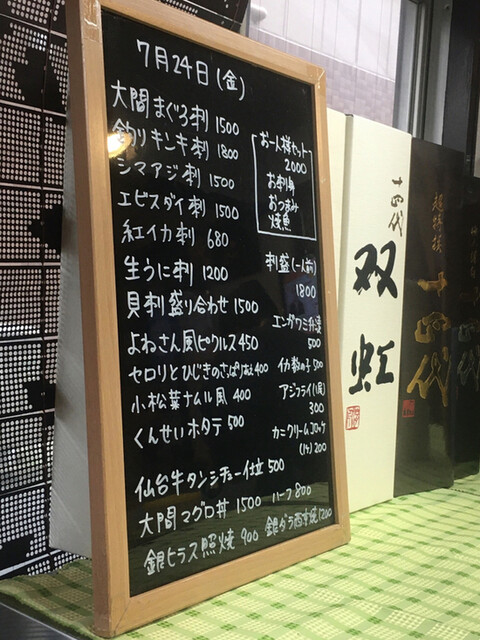 7月24日(金)
大間まぐろ刺 1500
釣りキンキ刺 1800
シマアジ刺 1500
エビスダイ刺 1500
紅イカ刺 680
生うに刺 1200
貝刺盛り合わせ 1500
よねさん風ピクルス 450
セロリとひじきのさっぱり和え 400
小松菜ナムル風 400
くんせいホタテ 500
お一人様セット
2000
お刺身
おつまみ
焼魚
刺盛(一人前)
1800
エンガワミミ
500
イカ
500
アジフライ(1尾)
300
カニクリームコロッケ
(1ケ) 200
仙台牛タンシチュー仕立 500
大間マグロ丼 1500 ハーフ 800
銀ヒラス照焼 900 銀ダラ西京焼 1200
十四代
双虹
超特撰
十四代